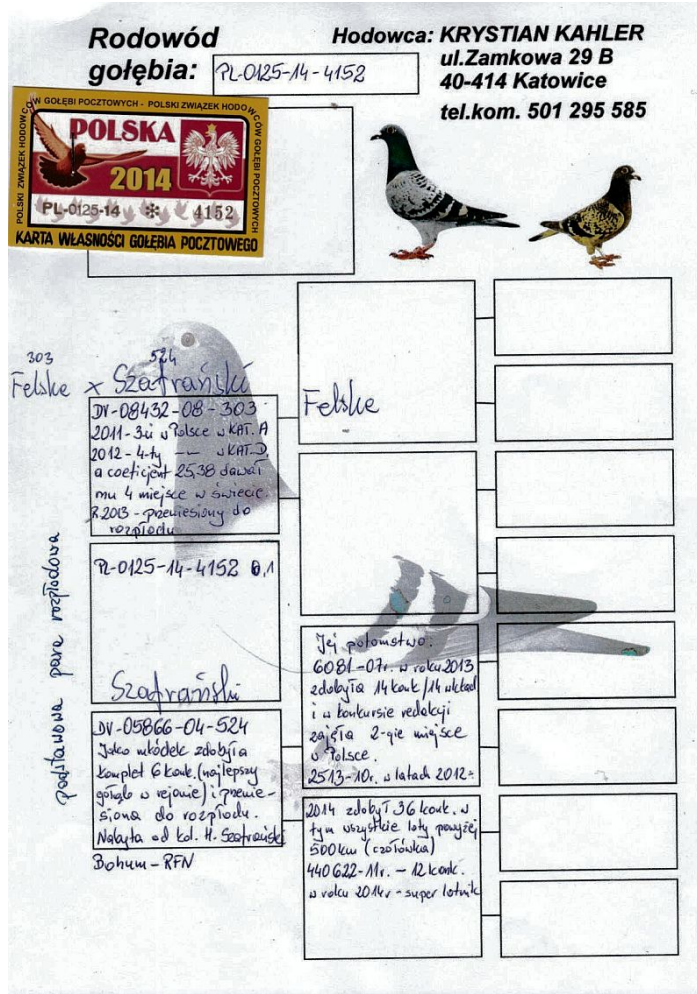 Rodowód
gołębia:
PL-0125-14-4152
Hodowca: KRYSTIAN KAHLER
ul.Zamkowa 29 B
40-414 Katowice
tel.kom. 501 295 585
POLSKI ZWIĄZEK HODOWCÓW GOŁĘBI POCZTOWYCH - POLSKI ZWIĄZEK HODOWCÓW GOŁĘBI POCZTOWYCH
POLSKA
2014
PL-0125-14 * 4152
KARTA WŁASNOŚCI GOŁĘBIA POCZTOWEGO
303 524
Felske x Szafrański
DV-08432-08-303
2011-3-ci w Polsce w KAT. A
2012-4-ty -„- w KAT.D,
a coeficjent 25,38 dawał
mu 4 miejsce w świecie.
R.2013 - przeniesiony do
rozpłodu
Felske
podstawowa para rozpłodowa
PL-0125-14-4152 0,1
Szafrański
DV-05866-04-524
Jako młódek zdobyła
komplet 6 konk. (najlepszy
gołąb w rejonie) i przenie-
siona do rozpłodu.
Nabyta od kol. H. Szafrański
Bohum-RFN
Jej potomstwo:
6081-07r. w roku 2013
zdobyła 14 konk/14 wkład
i w konkursie redakcji
zajęła 2-gie miejsce
w Polsce.
2513-10r. w latach 2012÷
2014 zdobył 36 konk. w
tym wszystkie loty powyżej
500km (czołówka)
440622-11r. - 12 konk.
w roku 2014r - super lotnik